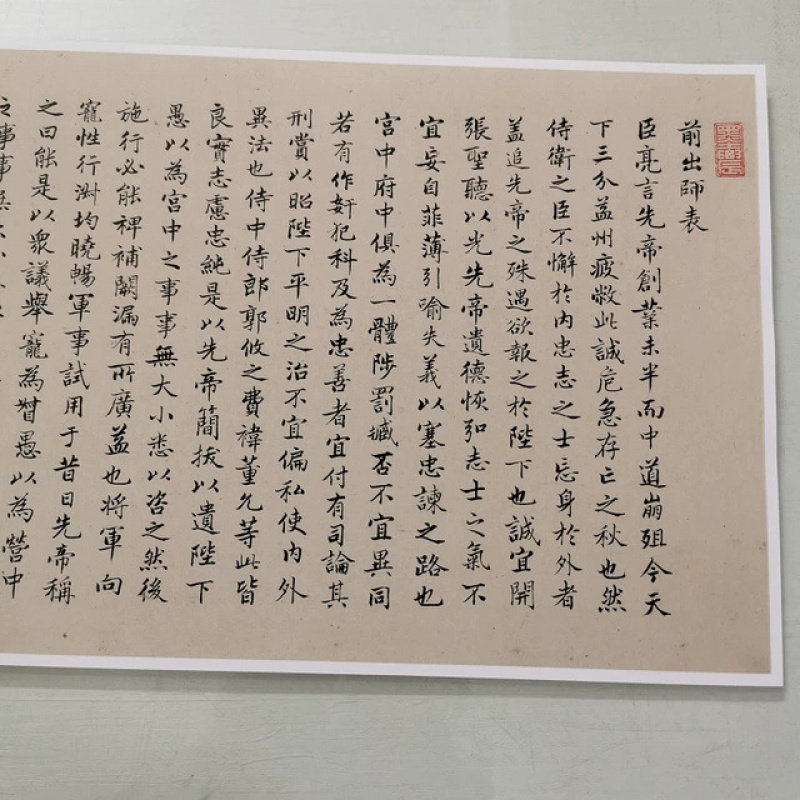 前出師表
臣亮言先帝創業未半而中道崩殂今天
下三分益州疲敝此誠危急存亡之秋也然
侍衛之臣不懈於内忠志之士忘身於外者
蓋追先帝之殊遇欲報之於陛下也誠宜開
張聖聽以光先帝遺德恢弘志士之氣不
宜妄自菲薄引喻失義以塞忠諫之路也
宮中府中俱為一體陟罰臧否不宜異同
若有作奸犯科及為忠善者宜付有司論其
刑賞以昭陛下平明之治不宜偏私使内外
異法也侍中侍郎郭攸之費禕董允等此皆
良實志慮忠純是以先帝簡拔以遺陛下
愚以為宮中之事事無大小悉以咨之然後
施行必能裨補闕漏有所廣益也將軍向
寵性行淑均曉暢軍事試用于昔日先帝稱
之曰能是以眾議舉寵為督愚以為營中
之事事無